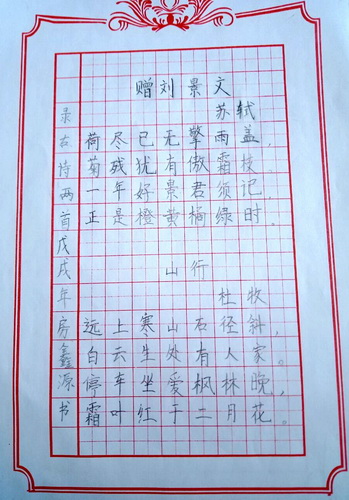 赠刘景文
苏轼
荷尽已无擎雨盖,
菊残犹有傲霜枝
一年好景君须记,
正是橙黄橘绿时.
山行
杜牧
远上寒山石径斜,
白云生处有人家。
停车坐爱枫林晚,
霜叶红于二月花。
录古诗两首戊戌年房鑫源书